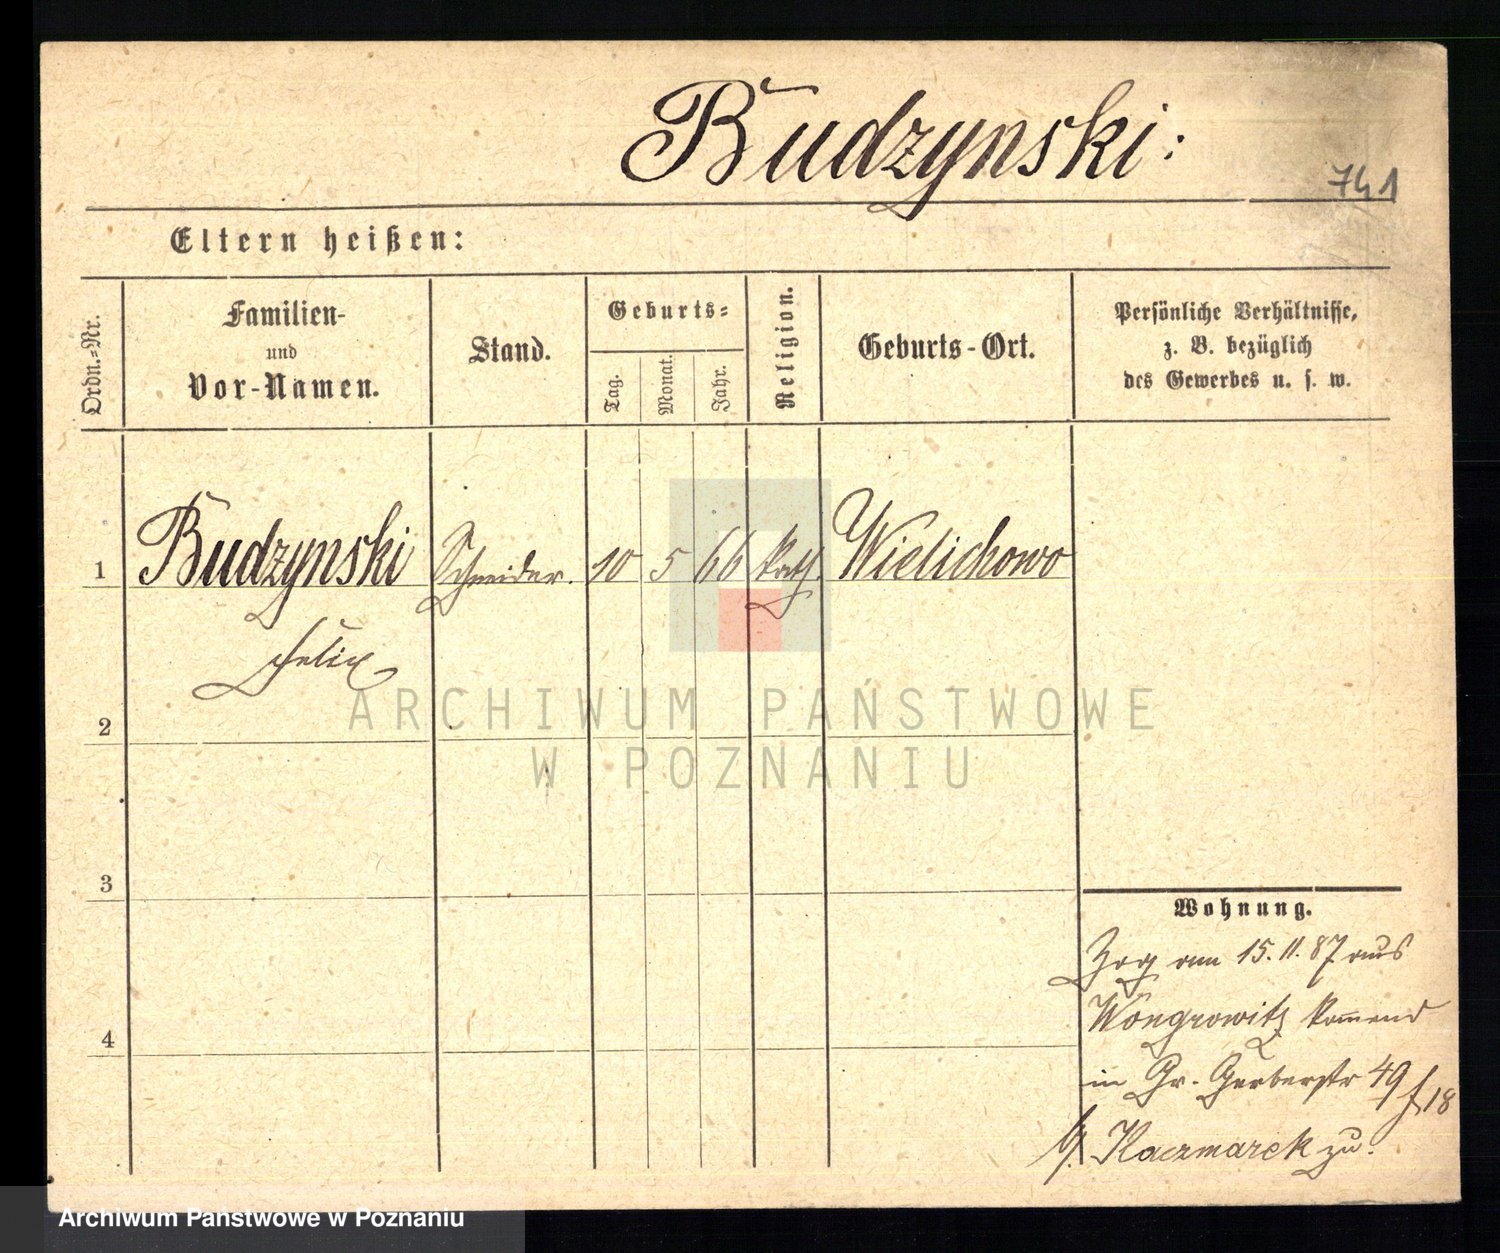 Budzynski:
741
Eltern heißen:
Ordn.=Nr.
Familien-
und
Vor-Namen.
Stand.
Geburts=
Tag.
Monat.
Jahr.
Religion.
Geburts-Ort.
Persönliche Verhältnisse,
z. B. bezüglich
des Gewerbes u. s. w.
1 Budzynski Schneider. 10 5 66 kath. Wielichowo
Felix
2
3
4
Wohnung.
Zog am 15.11.87 aus
Wongrowitz kommend
in Gr. Gerberstr 49 18
b/ Kaczmarek zu.
ARCHIWUM PAŃSTWOWE
W POZNANIU
Archiwum Państwowe w Poznaniu